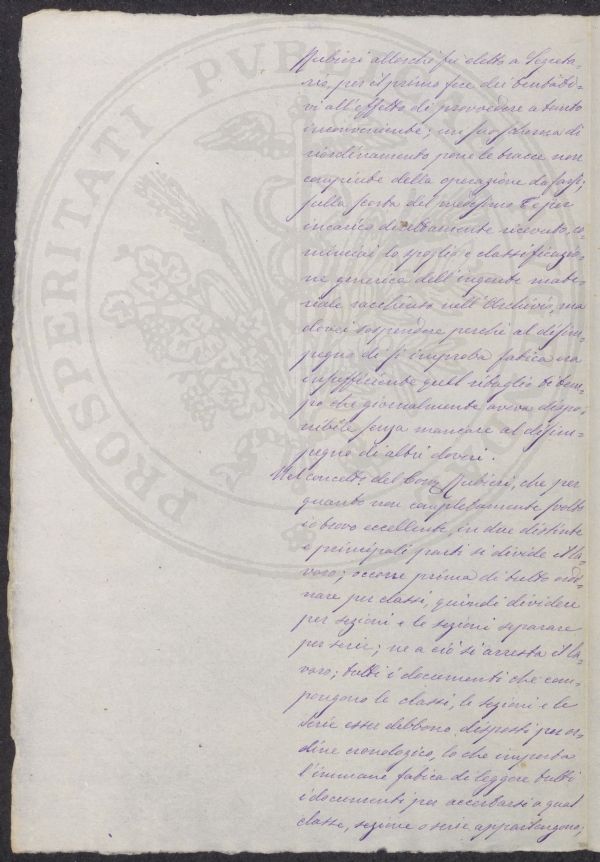 Rubieri allorché fu eletto a Segreta-
rio, per il primo fece dei tentati-
vi all'effetto di provvedere a tanto
inconveniente; un suo schema di
riordinamento pone le tracce non
compiute della operazione da farsi;
sulla scorta del medesimo e per
incarico direttamente ricevuto, co-
minciai lo spoglio e classificazio-
ne generica dell'ingente mate-
riale racchiuso nell'Archivio, ma
dovei sospendere perché al disim-
pegno di sì improba fatica era
insufficiente quel ritaglio di tem-
po che giornalmente aveva dispo-
nibile senza mancare al disim-
pegno di altri doveri.
Nel concetto del Rubieri, che per
quanto non completamente svolto
io trovo eccellente, in due distinte
e principali parti si divide il la-
voro; occorre prima di tutto ordi-
nare per classi, quindi dividere
per sezioni e le sezioni separare
per serie; ne a ciò si arresta il la-
voro; tutti i documenti che com-
pongono le classi, le sezioni e le
serie esser debbono disposti per or-
dine cronologico, lo che importa
l'immane fatica di leggere tutti
i documenti per accertarsi a qual
classe, sezione o serie appartengono;
PROSPERITATI